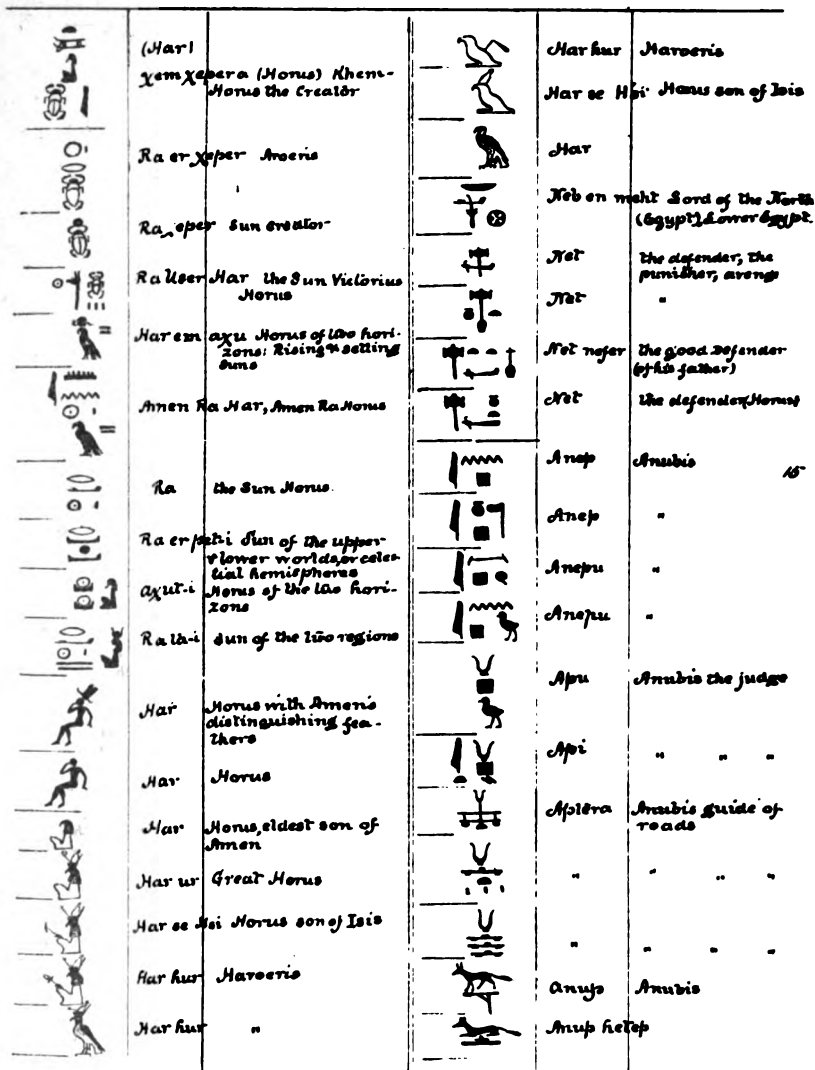 (Har)
χemχepera (Horus) Khem-
Horus the Creator
Ra er χeper Aroeris
Ra χeper Sun creator
Ra User Har the Sun Victorius
Horus
Har em aχu Horus of two hori-
zons: Rising & setting
suns
Amen Ra Har, Amen Ra Horus
Ra the Sun Horus
Ra er pet-i Sun of the upper
& lower worlds, or celes-
tial hemispheres
aχut-i Horus of the two hori-
zons
Ra ta-i Sun of the two regions
Har Horus with Amen's
distinguishing fea-
thers
Har Horus
Har Horus, eldest son of
Amen
Har ur Great Horus
Har se Hsi Horus son of Isis
Har hur Haroeris
Har hur "
Har hur Haroeris
Har se Hsi Horus son of Isis
Har
Neb en meht Lord of the North
(Egypt) Lower Egypt.
Net the defender, the
punisher, aveng
Net "
Net nefer the good Defender
(of his father)
Net the defender (Horus)
Anep Anubis
15
Anep "
Anepu "
Anepu "
Apu Anubis the judge
Api " " "
Aptera Anubis guide of
roads
" " " "
" " " "
Anup Anubis
Anup hetep